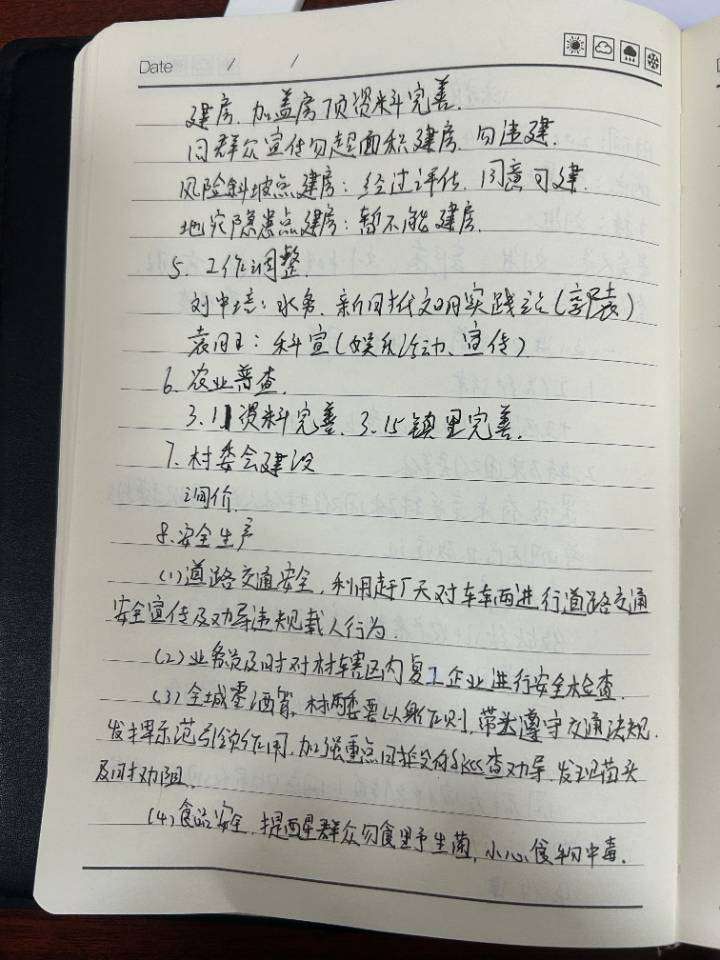 Date / /
建房、加盖房顶资料完善.
向群众宣传勿超面积建房、勿违建.
风险斜坡点建房：经过评估、同意可建.
地灾隐患点建房：暂不能建房.
5. 工作调整.
刘中培：水务、新时代文明实践站(郭袁)
袁旺：科宣(娱乐活动、宣传)
6. 农业普查.
3.11资料完善、3.15镇里完善.
7. 村委会建设
询价.
8. 安全生产
(1)道路交通安全，利用赶厂天对车辆进行道路交通
安全宣传及劝导违规载人行为.
(2)业务员及时对村辖区内复工企业进行安全检查.
(3)全域零酒驾，村两委要以身作则，带头遵守交通法规.
发挥示范引领作用，加强重点时段的巡查劝导，发现苗头
及时劝阻.
(4)食品安全，提醒群众勿食野生菌，小心食物中毒.